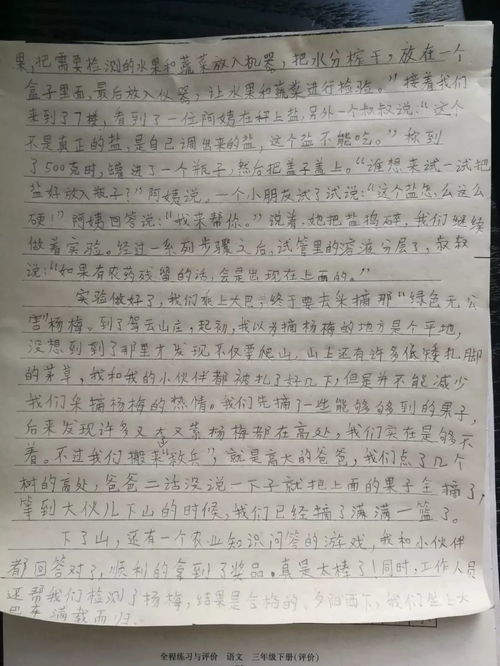 果,把需要检测的水果和蔬菜放入机器,把水分榨干,放在一个
盒子里面,最后放入仪器,让水果和蔬菜进行检验。”接着我们
来到了7楼,看到了一位阿姨在秤上盐,另外一个叔叔说:“这个
不是真正的盐,是自己调出来的盐,这个盐不能吃。”称到
了500克时,罐进了一个瓶子,然后把盖子盖上。“谁想来试一试把
盐好放入瓶子?”阿姨说。一个小朋友试了试说:“这个盐怎么这么
硬!”阿姨回答说:“我来帮你。”说着,她把盐捣碎,我们继续
做着实验。经过一系列步骤之后,试管里的溶液分层了,叔叔
说:“如果有农药残留的话,会是出现在上面的。”
实验做好了,我们乘上大巴,终于要去采摘那“绿色无公
害”杨梅。到了驾云山庄,起初,我以为摘杨梅的地方是个平地,
没想到到了那里才发现不仅要爬山,山上还有许多低矮扎脚
的茅草,我和我的小伙伴都被扎了好几下,但是并不能减少
我们采摘杨梅的热情。我们先摘了一些能够够到的果子,
后来发现许多又大又紫杨梅都在高处,我们实在是够不
着。不过我们搬来“救兵”,就是高大的爸爸,我们点了几个
树的高处,爸爸二话没说一下子就把上面的果子全摘了,
等到大伙儿下山的时候,我们已经摘了满满一篮了。
下了山,还有一个农业知识问答的游戏,我和小伙伴
都回答对了,顺利的拿到了奖品。真是太棒了!同时,工作人员
还帮我们检测了杨梅,结果是合格的。夕阳西下,我们坐上大
巴车满载而归。
全程练习与评价 语文 三年级下册(评价)